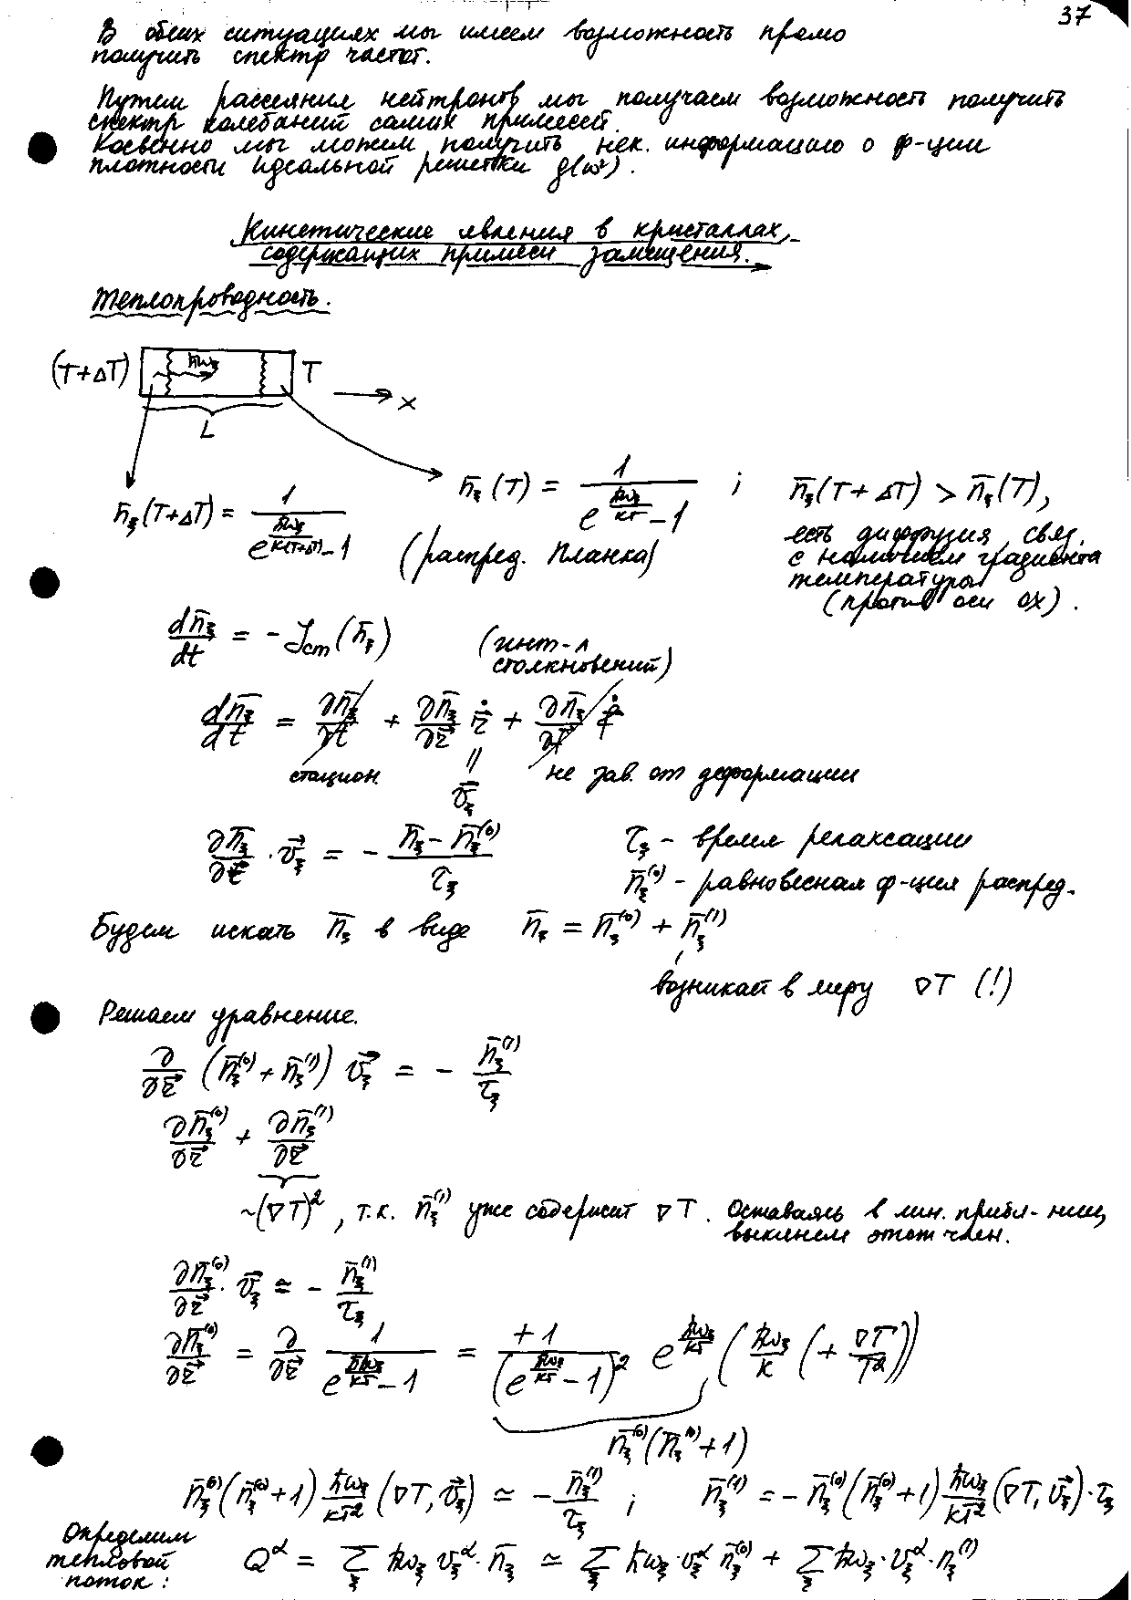 37
В обеих ситуациях мы имеем возможность прямо
получить спектр частот.
Путем рассеяния нейтронов мы получаем возможность получить
спектр колебаний самих примесей.
Косвенно мы можем получить нек. информацию о ф-ции
плотности идеальной решетки g(ω²).
Кинетические явления в кристаллах,
содержащих примеси замещения.
Теплопроводность.
(T+ΔT) ħω_ξ T
x
L
n̄_ξ(T+ΔT) = 1/(e^{ħω_ξ/k(T+ΔT)} − 1)
n̄_ξ(T) = 1/(e^{ħω_ξ/kT} − 1) ;
(распред. Планка)
n̄_ξ(T+ΔT) > n̄_ξ(T),
есть диффузия, связ.
с наличием градиента
температуры
(против оси OX).
dn̄_ξ/dt = − J_ст(n̄_ξ) (инт-л
столкновений)
dn̄_ξ/dt = ∂n̄_ξ/∂t + ∂n̄_ξ/∂r⃗ ṙ⃗ +
стацион. || не зав. от деформации
v⃗_ξ
∂n̄_ξ/∂r⃗ · v⃗_ξ = − (n̄_ξ − n̄_ξ^(0))/τ_ξ
τ_ξ – время релаксации
n̄_ξ^(0) – равновесная ф-ция распред.
Будем искать n̄_ξ в виде n̄_ξ = n̄_ξ^(0) + n̄_ξ^(1)
возникает в меру ∇T (!)
Решаем уравнение.
∂/∂r⃗ (n̄_ξ^(0) + n̄_ξ^(1)) v⃗_ξ = − n̄_ξ^(1)/τ_ξ
∂n̄_ξ^(0)/∂r⃗ + ∂n̄_ξ^(1)/∂r⃗
~(∇T)², т.к. n̄_ξ^(1) уже содержит ∇T. Оставаясь в лин. прибл-нии,
выкинем этот член.
∂n̄_ξ^(0)/∂r⃗ · v⃗_ξ ≃ − n̄_ξ^(1)/τ_ξ
∂n̄_ξ^(0)/∂r⃗ = ∂/∂r⃗ 1/(e^{ħω_ξ/kT} − 1) = +1/(e^{ħω_ξ/kT} − 1)² e^{ħω_ξ/kT} (ħω_ξ/k (+ ∇T/T²))
n̄_ξ^(0)(n̄_ξ^(0)+1)
n̄_ξ^(0)(n̄_ξ^(0)+1) ħω_ξ/kT² (∇T, v⃗_ξ) ≃ − n̄_ξ^(1)/τ_ξ ; n̄_ξ^(1) = − n̄_ξ^(0)(n̄_ξ^(0)+1) ħω_ξ/kT² (∇T, v⃗_ξ)·τ_ξ
Определим
тепловой
поток:
Q^α = Σ_ξ ħω_ξ v_ξ^α · n̄_ξ ≃ Σ_ξ ħω_ξ · v_ξ^α n̄_ξ^(0) + Σ_ξ ħω_ξ · v_ξ^α · n_ξ^(1)